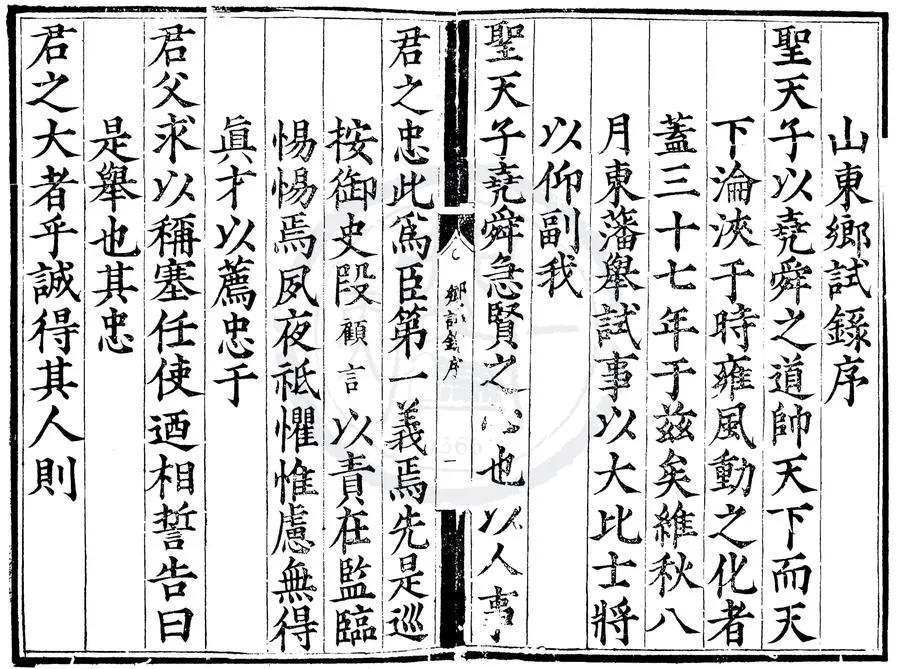 山東鄉試錄序
聖天子以堯舜之道帥天下而天
下淪浹于時雍風動之化者
蓋三十七年于兹矣維秋八
月東藩舉試事以大比士將
以仰副我
聖天子堯舜急賢之心也以人事
鄉試錄序
一
君之忠此爲臣第一義焉先是巡
按御史段顧言以責在監臨
惕惕焉夙夜祇懼惟慮無得
眞才以薦忠于
君父求以稱塞任使迺相誓告曰
是舉也其忠
君之大者乎誠得其人則